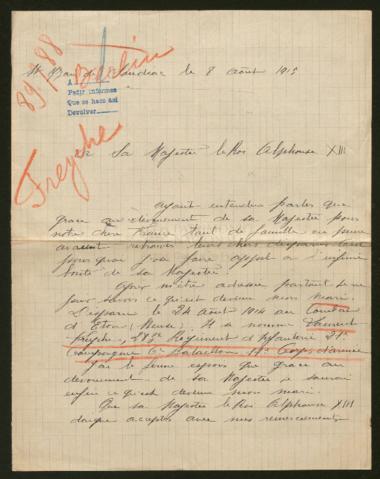 89788
Berlin
A
Pedir informes
Que se hace así
Devolver
Freyche
St le 8 août 1915
Sa Majesté le Roi Alphonse XIII
ayant entendu parler que
grace au dévouement de sa Majesté pour
notre chère France tant de famille en peine
avaient retrouvé leurs chers disparus
pourquoi j'ose faire appel à l'infinie
bonté de sa Majesté
m'être adressé partout
pour savoir ce qu'est devenu mon mari
disparu le 24 août 1914 au Combat
d'Eton (Meuse). Il se nomme Laurent
Freyche, Régiment d'Infanterie 21e
Compagnie 6e Bataillon
J'ai le ferme espoir que grace au
dévouement de sa Majesté je saurai
enfin ce qu'est devenu mon mari.
Que sa Majesté le Roi Alphonse XIII
daigne accepter avec mes remerciements